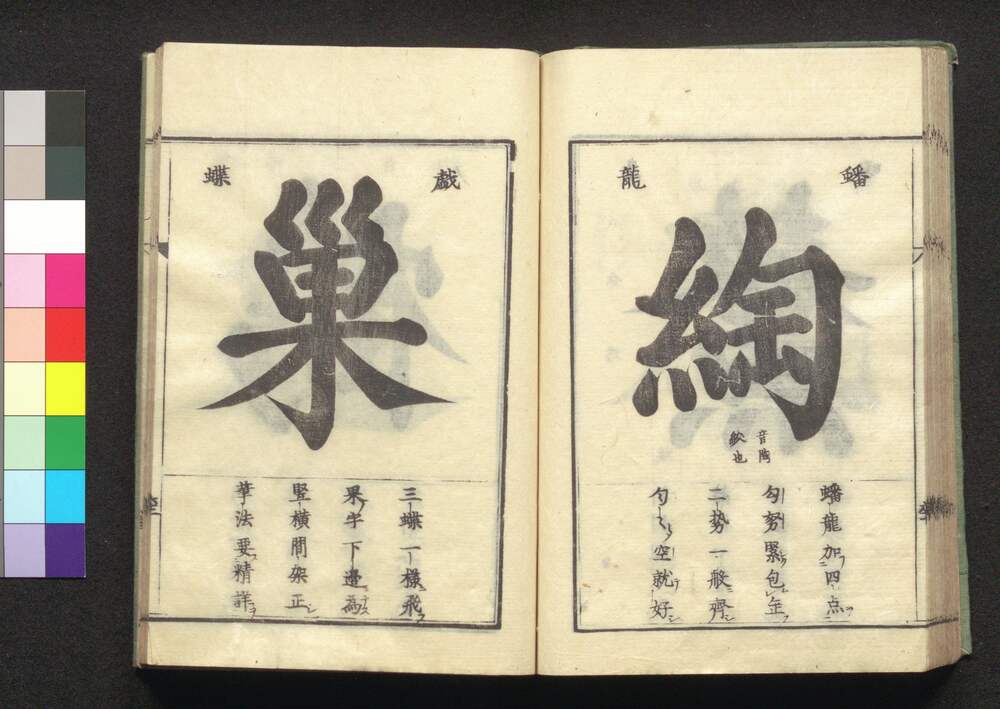 蟠龍
綯
音陶
絞也
蟠龍加四点
勾努緊包缶
二勢一般齊
勻空就好
戯蝶
巢
三蝶一様飛
果字下邊為
竪横間架正
筆法要精詳